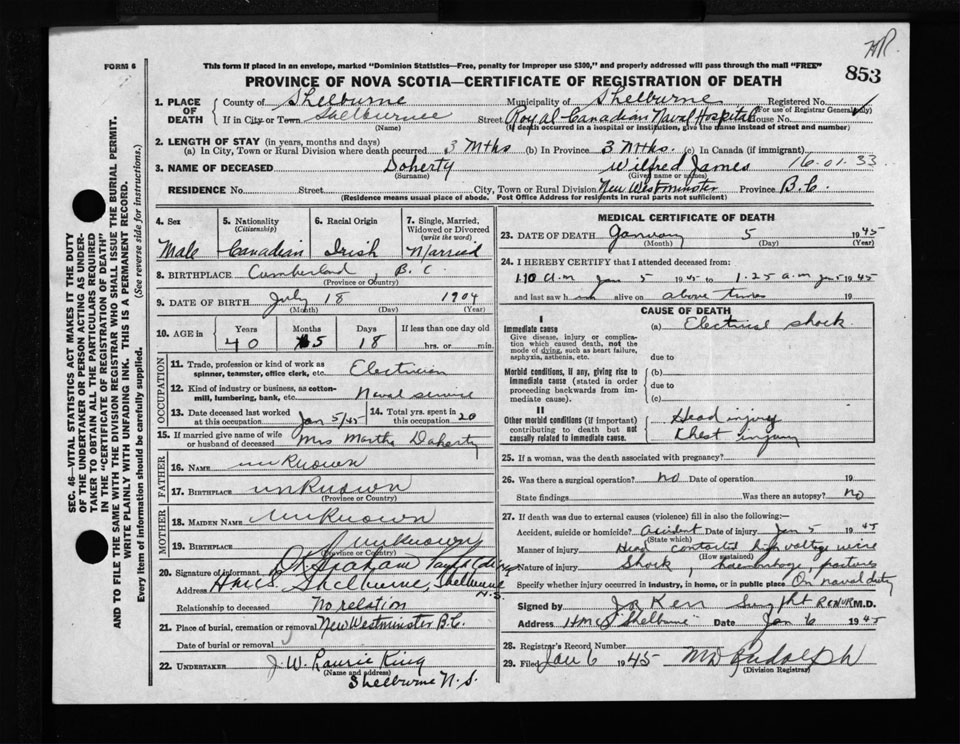 HR.
853
FORM 6
This form if placed in an envelope, marked "Dominion Statistics—Free, penalty for improper use $300," and properly addressed will pass through the mail "FREE"
PROVINCE OF NOVA SCOTIA—CERTIFICATE OF REGISTRATION OF DEATH
SEC. 46—VITAL STATISTICS ACT MAKES IT THE DUTY
OF THE UNDERTAKER OR PERSON ACTING AS UNDER-
TAKER TO OBTAIN ALL THE PARTICULARS REQUIRED
IN THE "CERTIFICATE OF REGISTRATION OF DEATH"
AND TO FILE THE SAME WITH THE DIVISION REGISTRAR WHO SHALL ISSUE THE BURIAL PERMIT.
WRITE PLAINLY WITH UNFADING INK. THIS IS A PERMANENT RECORD.
Every item of information should be carefully supplied. (See reverse side for instructions.)
1. PLACE OF DEATH County of Shelburne Municipality of Shelburne Registered No.
(For use of Registrar General only)
If in City or Town Shelburne Street Royal Canadian Naval Hospital House No.
(Name) (If death occurred in a hospital or institution, give the name instead of street and number)
2. LENGTH OF STAY (in years, months and days)
(a) In City, Town or Rural Division where death occurred 3 Mths (b) In Province 3 Mths. (c) In Canada (if immigrant)
3. NAME OF DECEASED Doherty Wilfred James 16.01.33
(Surname) (Given name or names)
RESIDENCE No. Street City, Town or Rural Division New Westminster Province B.C.
(Residence means usual place of abode. Post Office Address for residents in rural parts not sufficient)
4. Sex 5. Nationality (Citizenship) 6. Racial Origin 7. Single, Married, Widowed or Divorced (write the word)
Male Canadian Irish Married
8. BIRTHPLACE Cumberland, B.C.
(Province or Country)
9. DATE OF BIRTH July 18 1904
(Month) (Day) (Year)
10. AGE in Years Months Days If less than one day old
40 5 18 hrs. or min.
OCCUPATION
11. Trade, profession or kind of work as spinner, teamster, office clerk, etc. Electrician
12. Kind of industry or business, as cotton-mill, lumbering, bank, etc. Naval service
13. Date deceased last worked at this occupation Jan 5/45 14. Total yrs. spent in this occupation 20
15. If married give name of wife or husband of deceased Mrs Martha Doherty
FATHER
16. NAME unknown
17. BIRTHPLACE unknown
(Province or Country)
MOTHER
18. MAIDEN NAME unknown
19. BIRTHPLACE unknown
(Province or Country)
20. Signature of informant Graham
Address HMCS Shelburne, Shelburne N.S.
Relationship to deceased No relation
21. Place of burial, cremation or removal New Westminster B.C.
Date of burial or removal
22. UNDERTAKER J. W. Laurie King
(Name and address)
Shelburne N.S.
MEDICAL CERTIFICATE OF DEATH
23. DATE OF DEATH January 5 1945
(Month) (Day) (Year)
24. I HEREBY CERTIFY that I attended deceased from:
1.10 a.m Jan 5 1945 to 1.25 a.m Jan 5 1945
and last saw h im alive on above times 19
CAUSE OF DEATH
I
Immediate cause (a) Electrical shock
Give disease, injury or complication which caused death, not the mode of dying, such as heart failure, asphyxia, asthenia, etc. due to
Morbid conditions, if any, giving rise to immediate cause (stated in order proceeding backwards from immediate cause). (b)
due to
(c)
II
Other morbid conditions (if important) contributing to death but not causally related to immediate cause. Head injury
Chest injury
25. If a woman, was the death associated with pregnancy?
26. Was there a surgical operation? no Date of operation 19
State findings Was there an autopsy? no
27. If death was due to external causes (violence) fill in also the following:—
Accident, suicide or homicide? Accident Date of injury Jan 5 1945
(State which)
Manner of injury Head contacted high voltage wire
(How sustained)
Nature of injury Shock, haemorrhage, fractures
Specify whether injury occurred in industry, in home, or in public place On naval duty
Signed by Jos Kerr RCNVR M.D.
Address HMCS "Shelburne" Date Jan 6 1945
28. Registrar's Record No.
29. Filed Jan 6 1945 MD Rudolph
(Division Registrar)